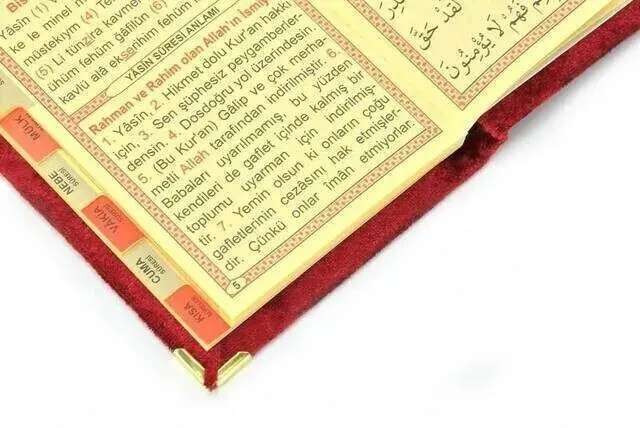 Yâsîn (1)
ke le minel m
müstekıym (4) Te
(5) Li tünzira kavmen
ühüm fehüm gâfilûn (6)
kavlü alâ ekserihim fehüm
YASİN SÛRESİ ANLAMI
Rahman ve Rahim olan Allah'ın İsmiy
1. Yâsîn, 2. Hikmet dolu Kur'an hakkı
için, 3. Sen şüphesiz peygamberler-
densin. 4. Dosdoğru yol üzerindesin.
5. (Bu Kur'an) Gâlip ve çok merha-
metli Allah tarafından indirilmiştir. 6.
Babaları uyarılmamış, bu yüzden
kendileri de gaflet içinde kalmış bir
toplumu uyarman için indirilmiş-
tir. 7. Yemin olsun ki onların çoğu
gafletlerinin cezasını hak etmişler-
dir. Çünkü onlar îmân etmiyorlar.
5
فَهُمْ لَا يُؤْمِنُونَ
MÜLK
NEBE
SÛRESİ
VÂKIA
SÛRESİ
CUMA
SÛRESİ
KISA
SÛRELER